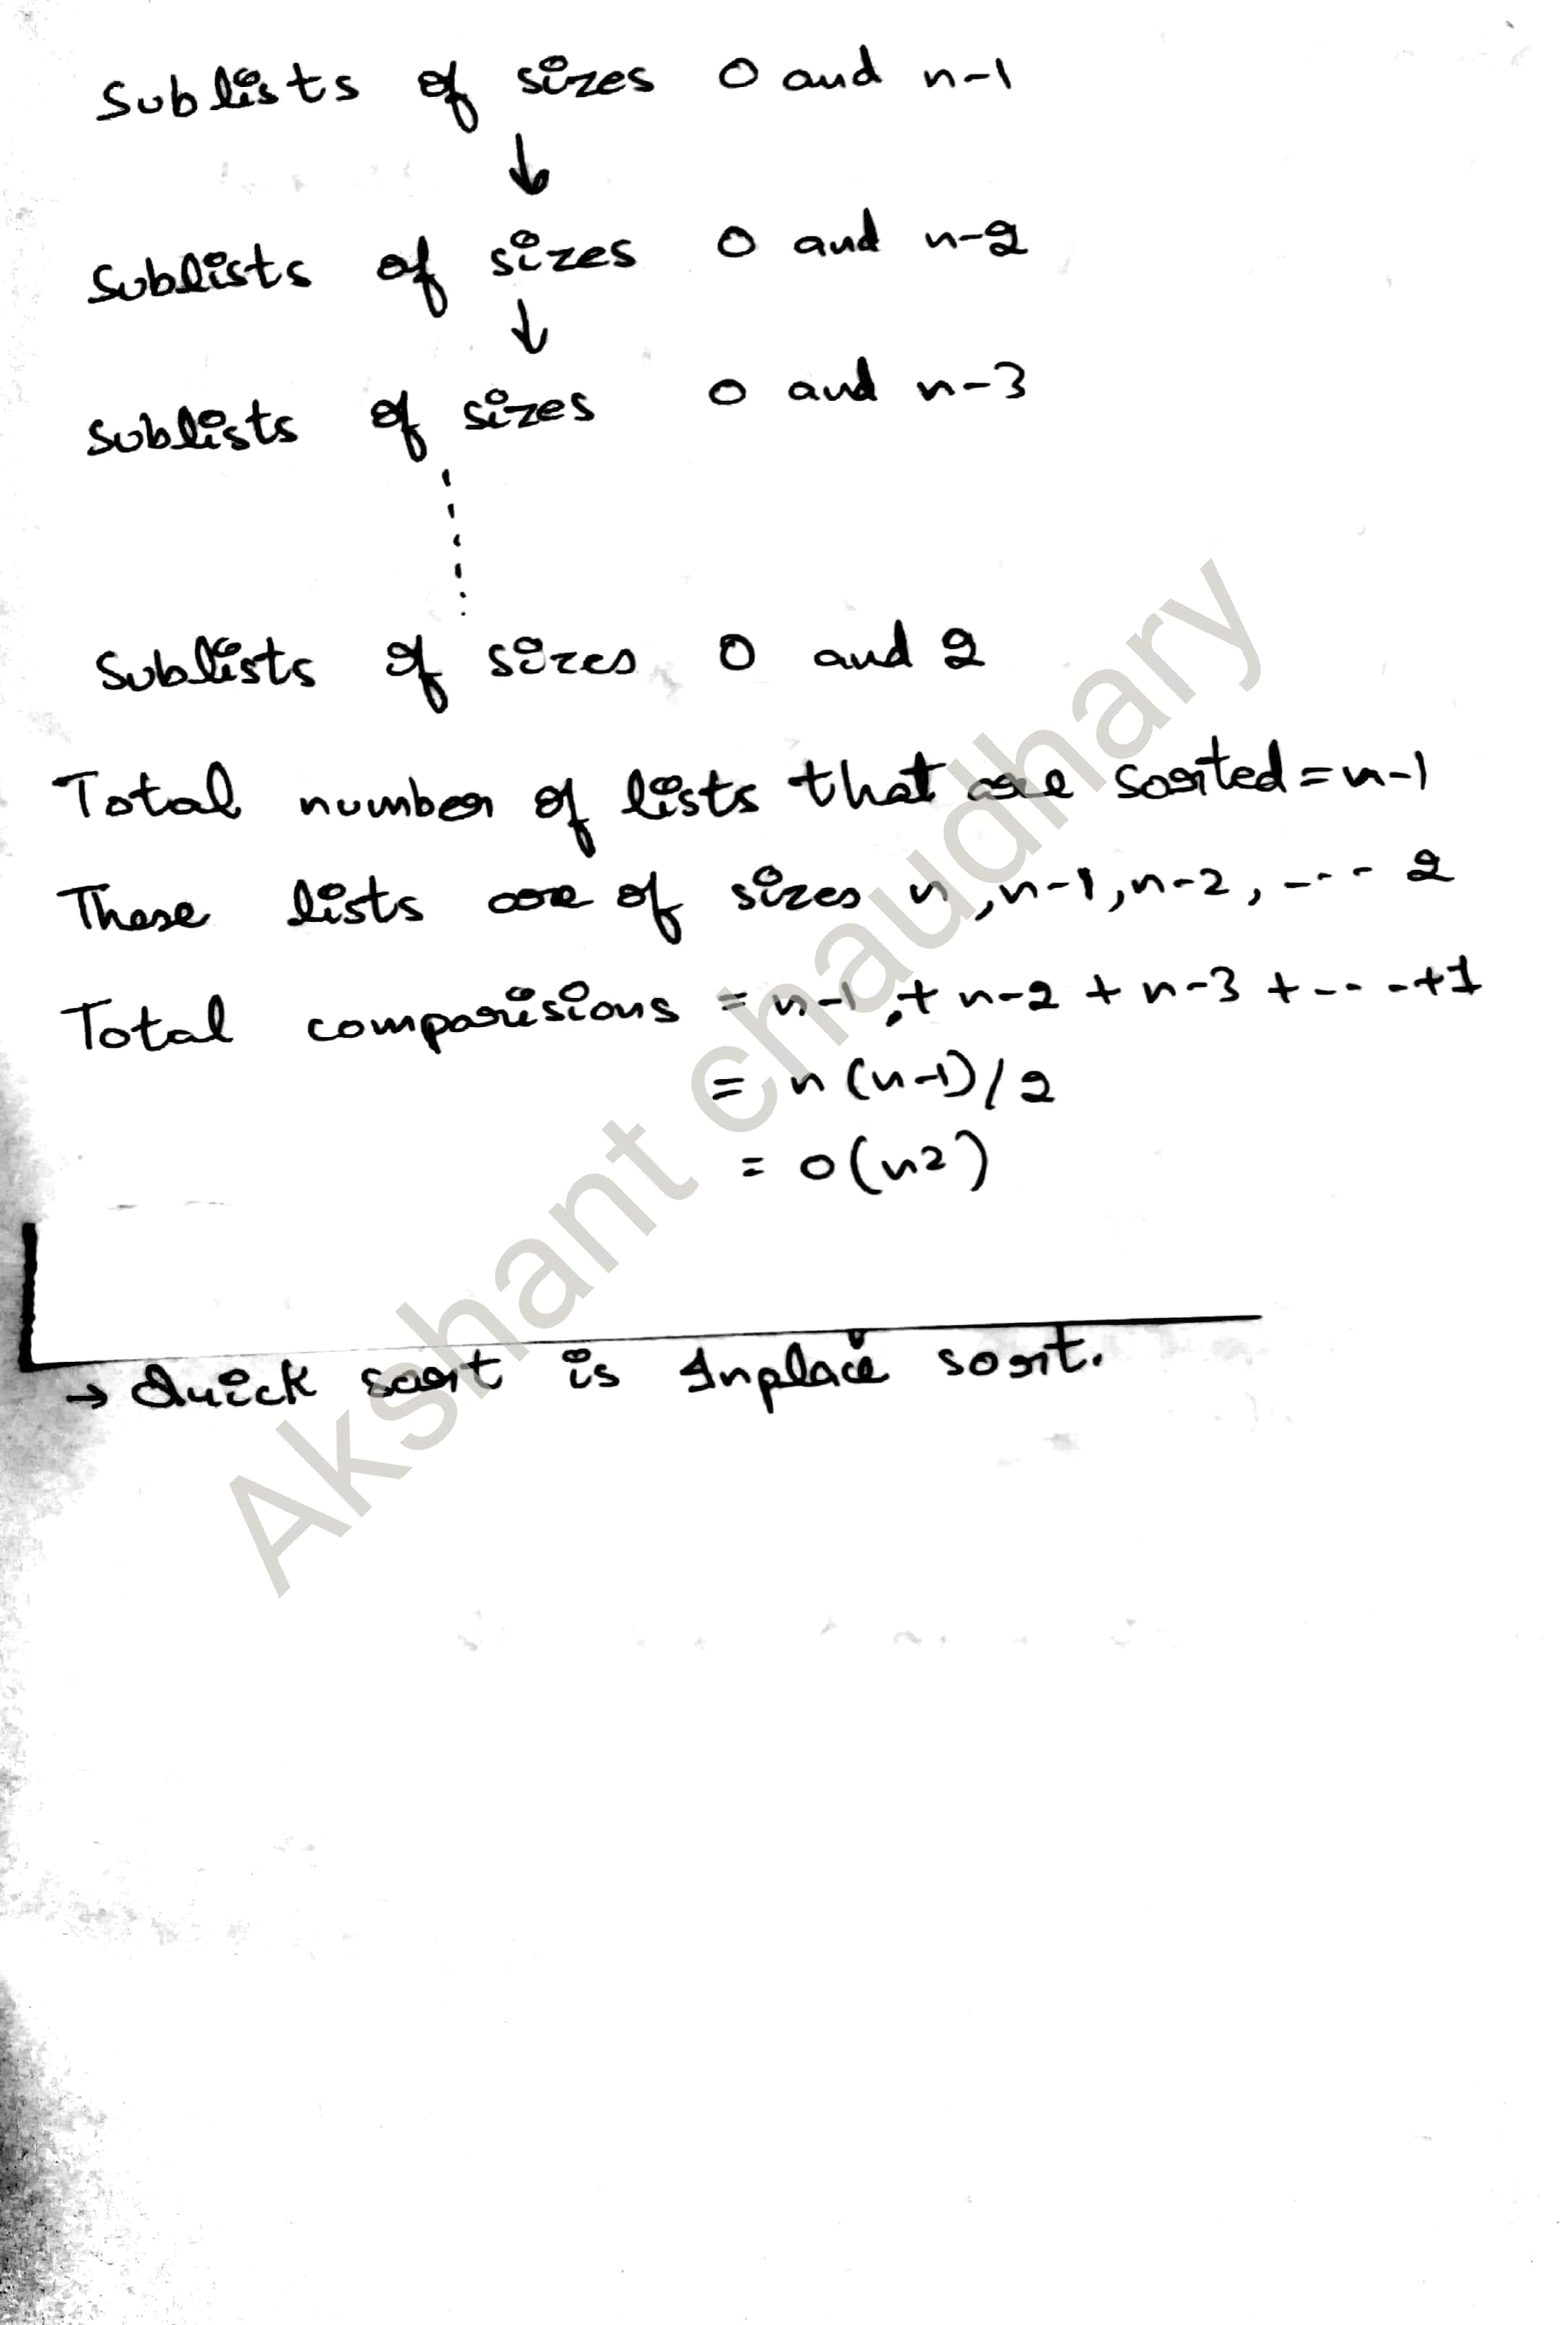 Sublists of sizes 0 and n-1
↓
Sublists of sizes 0 and n-2
↓
Sublists of sizes 0 and n-3
Sublists of sizes 0 and 2
Total number of lists that are sorted = n-1
These lists are of sizes n, n-1, n-2, ---- 2
Total comparisions = n-1 + n-2 + n-3 + --- +1
= n(n-1)/2
= O(n2)
→ Quick sort is Inplace sort.
Akshant chaudhary